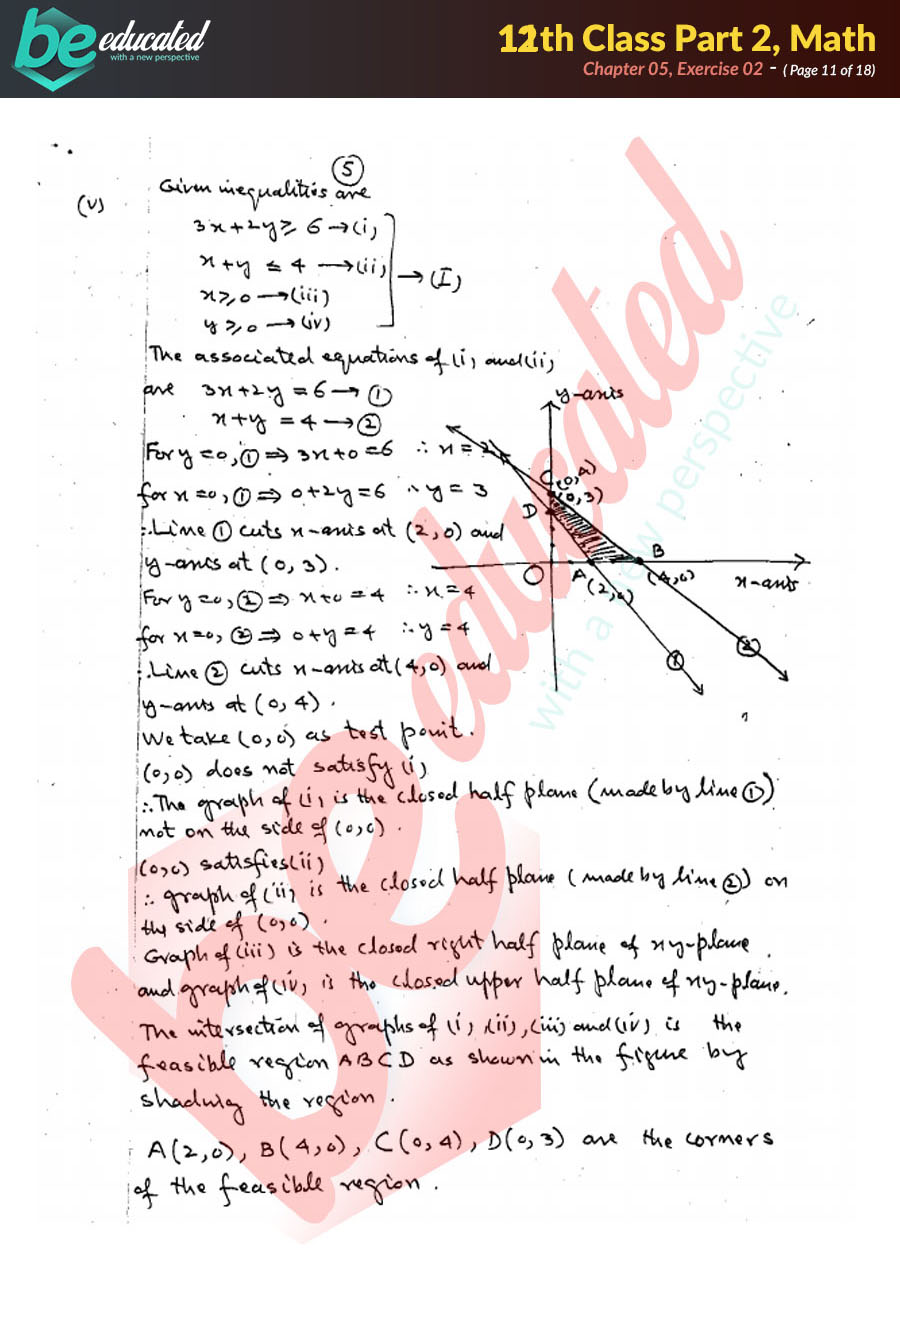 be educated
with a new perspective
12th Class Part 2, Math
Chapter 05, Exercise 02 - ( Page 11 of 18)
5
(v) Given inequalities are
3x+2y ≥ 6 → (i)
x+y ≤ 4 → (ii)
→ (I)
x ≥ 0 → (iii)
y ≥ 0 → (iv)
The associated equations of (i) and (ii)
are 3x+2y = 6 → ①
x+y = 4 → ②
For y=0, ① ⇒ 3x+0=6 ∴ x=2
for x=0, ① ⇒ 0+2y=6 ∴ y=3
∴ Line ① cuts x-axis at (2,0) and
y-axis at (0,3).
For y=0, ② ⇒ x+0=4 ∴ x=4
for x=0, ② ⇒ 0+y=4 ∴ y=4
∴ Line ② cuts x-axis at (4,0) and
y-axis at (0,4).
y-axis
C(0,4)
(0,3)
D
B
O
A
(2,0)
(4,0)
x-axis
①
②
We take (0,0) as test point.
(0,0) does not satisfy (i)
∴ The graph of (i) is the closed half plane (made by line ①)
not on the side of (0,0).
(0,0) satisfies (ii)
∴ graph of (ii) is the closed half plane (made by line ②) on
the side of (0,0).
Graph of (iii) is the closed right half plane of xy-plane
and graph of (iv) is the closed upper half plane of xy-plane.
The intersection of graphs of (i), (ii), (iii) and (iv) is the
feasible region ABCD as shown in the figure by
shading the region.
A(2,0), B(4,0), C(0,4), D(0,3) are the corners
of the feasible region.
be educated
with a new perspective